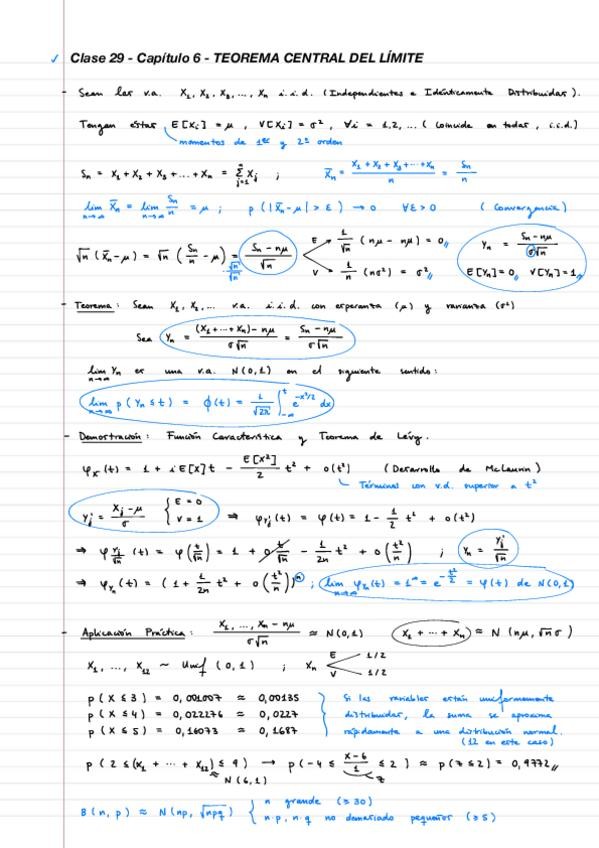 ✓ Clase 29 - Capítulo 6 - TEOREMA CENTRAL DEL LÍMITE
- Sean las v.a. X₁, X₂, X₃, ..., Xₙ i.i.d. (Independientes e Idénticamente Distribuidas).
Tengan éstas E[Xᵢ] = μ, V[Xᵢ] = σ², ∀i = 1,2, ... (Coincide en todas, i.i.d.)
momentos de 1er y 2º orden
Sₙ = X₁ + X₂ + X₃ + ... + Xₙ = Σⁿⱼ₌₁ Xⱼ ; X̄ₙ = (X₁ + X₂ + X₃ + ... + Xₙ)/n = Sₙ/n
lim n→∞ X̄ₙ = lim n→∞ Sₙ/n = μ ; p(|X̄ₙ - μ| > ε) → 0 ∀ε > 0 (Convergencia)
√n (X̄ₙ - μ) = √n (Sₙ/n - μ) = √n/√n (Sₙ - nμ)/√n E 1/√n (nμ - nμ) = 0 Yₙ = (Sₙ - nμ)/(σ√n)
V 1/n (nσ²) = σ² E[Yₙ] = 0, V[Yₙ] = 1
- Teorema: Sean X₁, X₂, ... v.a. i.i.d. con esperanza (μ) y varianza (σ²)
Sea Yₙ = ((X₁ + ... + Xₙ) - nμ)/(σ√n) = (Sₙ - nμ)/(σ√n)
lim n→∞ Yₙ es una v.a. N(0,1) en el siguiente sentido:
lim n→∞ p(Yₙ ≤ t) = ϕ(t) = 1/√2π ∫ᵗ₋∞ e^(-x²/2) dx
- Demostración: Función Característica y Teorema de Lévy.
φₓ(t) = 1 + iE[X]t - E[X²]/2 t² + o(t²) (Desarrollo de McLaurin)
Términos con v.d. superior a t²
Yⱼ' = (Xⱼ - μ)/σ { E = 0 V = 1 ⇒ φYⱼ'(t) = φ(t) = 1 - 1/2 t² + o(t²)
⇒ φ Yⱼ'/√n (t) = φ(t/√n) = 1 + 0 t/√n - 1/2n t² + o(t²/n) ; Yₙ = Yⱼ'/√n
⇒ φYₙ(t) = (1 + 1/2n t² + o(t²/n))ⁿ ; lim n→∞ φYₙ(t) = 1^∞ = e^(-t²/2) = φ(t) de N(0,1)
- Aplicación Práctica: (X₁, ..., Xₙ - nμ)/(σ√n) ≈ N(0,1) (X₁ + ... + Xₙ) ≈ N(nμ, √n σ)
X₁, ..., X₁₂ ~ Unif(0,1) ; Xₙ E 1/2
V 1/2
p(X ≤ 3) = 0,001007 ≈ 0,00135 Si las variables están uniformemente
p(X ≤ 4) = 0,022276 ≈ 0,0227 distribuidas, la suma se aproxima
p(X ≤ 5) = 0,16073 ≈ 0,1687 rápidamente a una distribución normal.
(12 en este caso)
p(2 ≤ (X₁ + ... + X₁₂) ≤ 9) → p(-4 ≤ (X-6)/1 ≤ 2) ≈ p(Z ≤ 2) = 0,9772
≈ N(6,1) Z
B(n,p) ≈ N(np, √npq) { n grande (≥ 30)
n·p, n·q no demasiado pequeños (≥ 5)